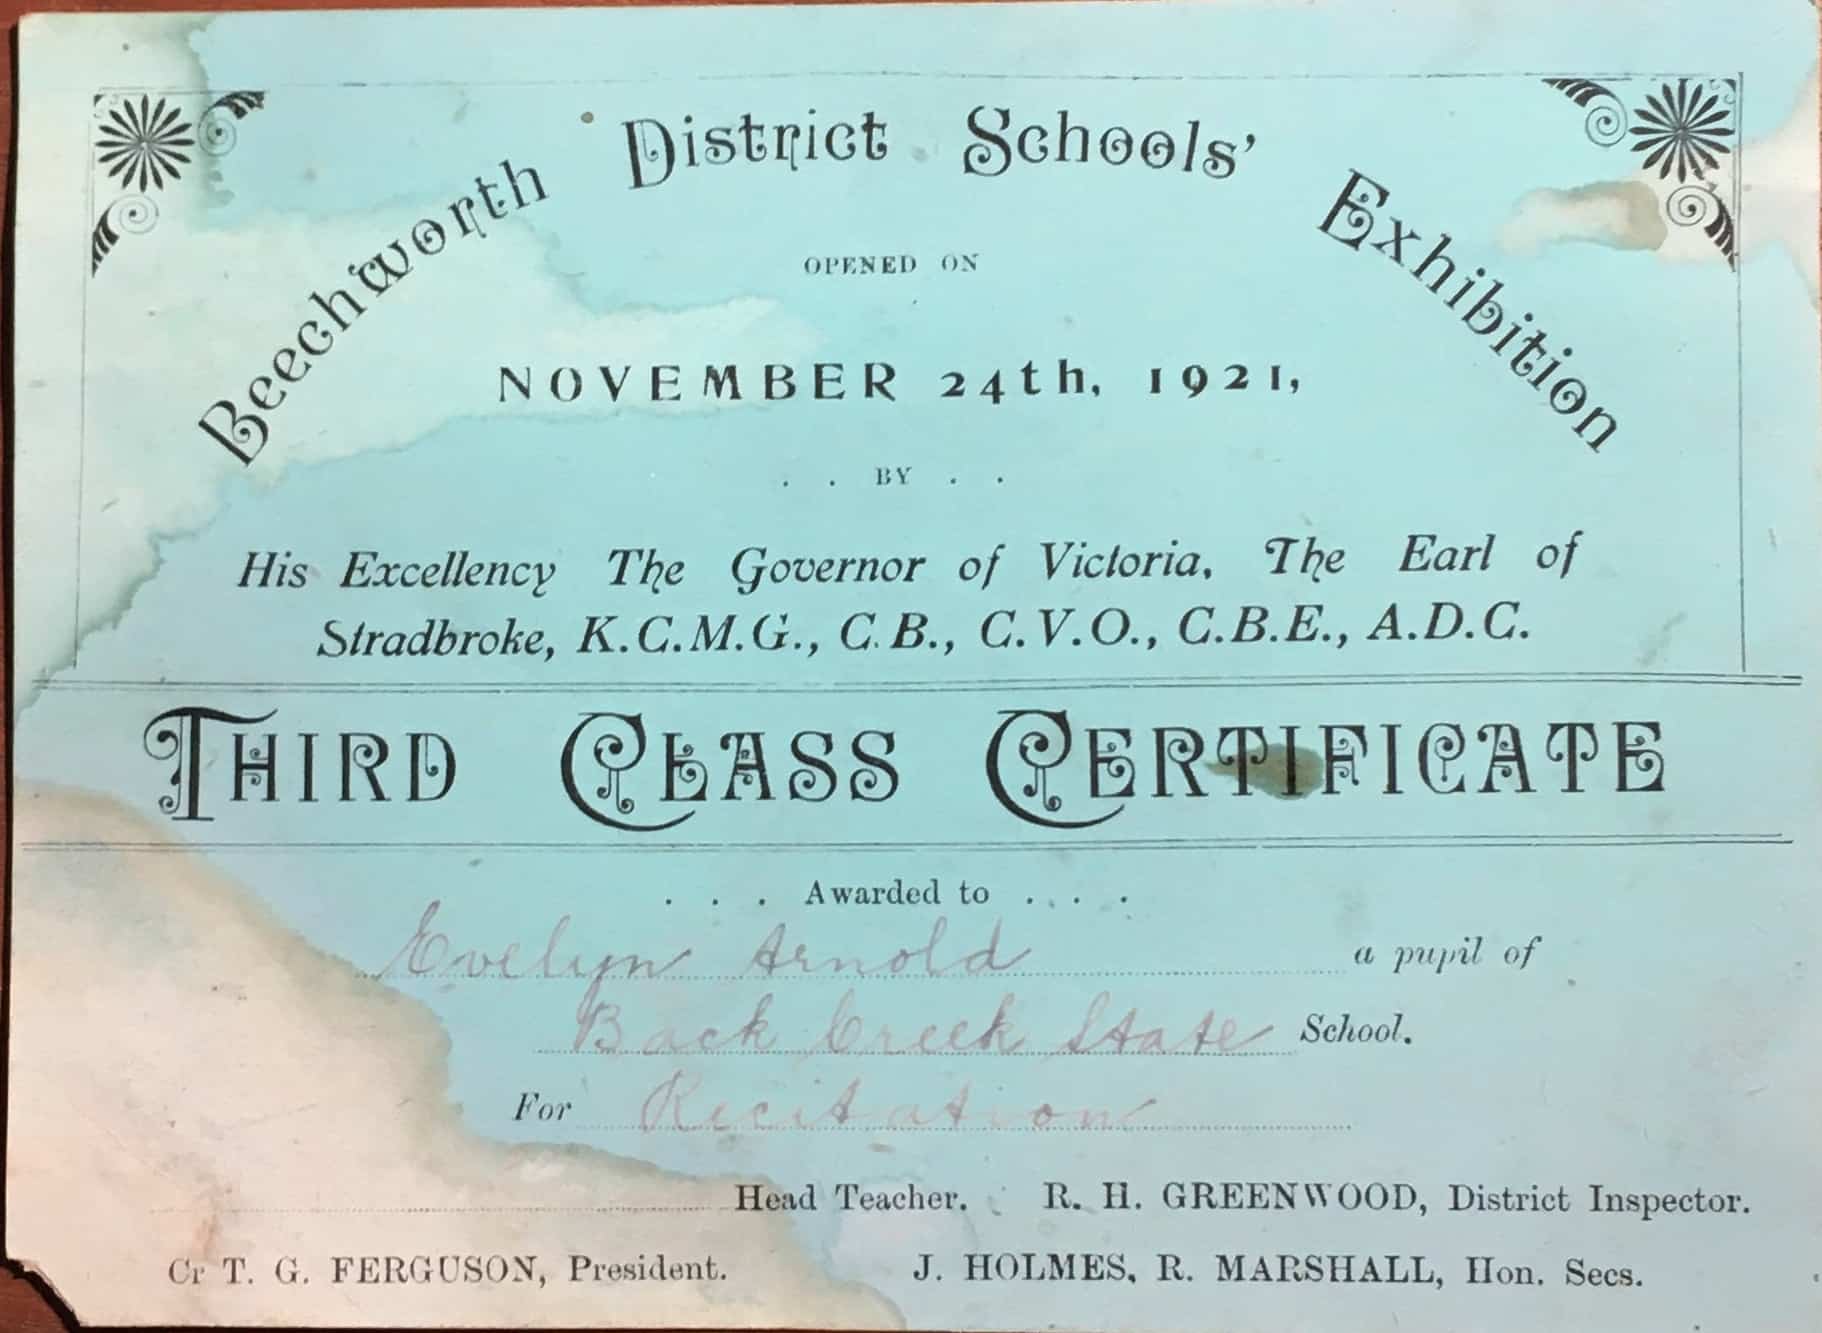 Beechworth District Schools' Exhibition
OPENED ON
NOVEMBER 24th, 1921,
. . BY . .
His Excellency The Governor of Victoria, The Earl of
Stradbroke, K.C.M.G., C.B., C.V.O., C.B.E., A.D.C.
THIRD CLASS CERTIFICATE
. . . Awarded to . . . .
Evelyn Arnold a pupil of
Back Creek State School.
For Recitation
Head Teacher. R. H. GREENWOOD, District Inspector.
Cr T. G. FERGUSON, President. J. HOLMES, R. MARSHALL, Hon. Secs.